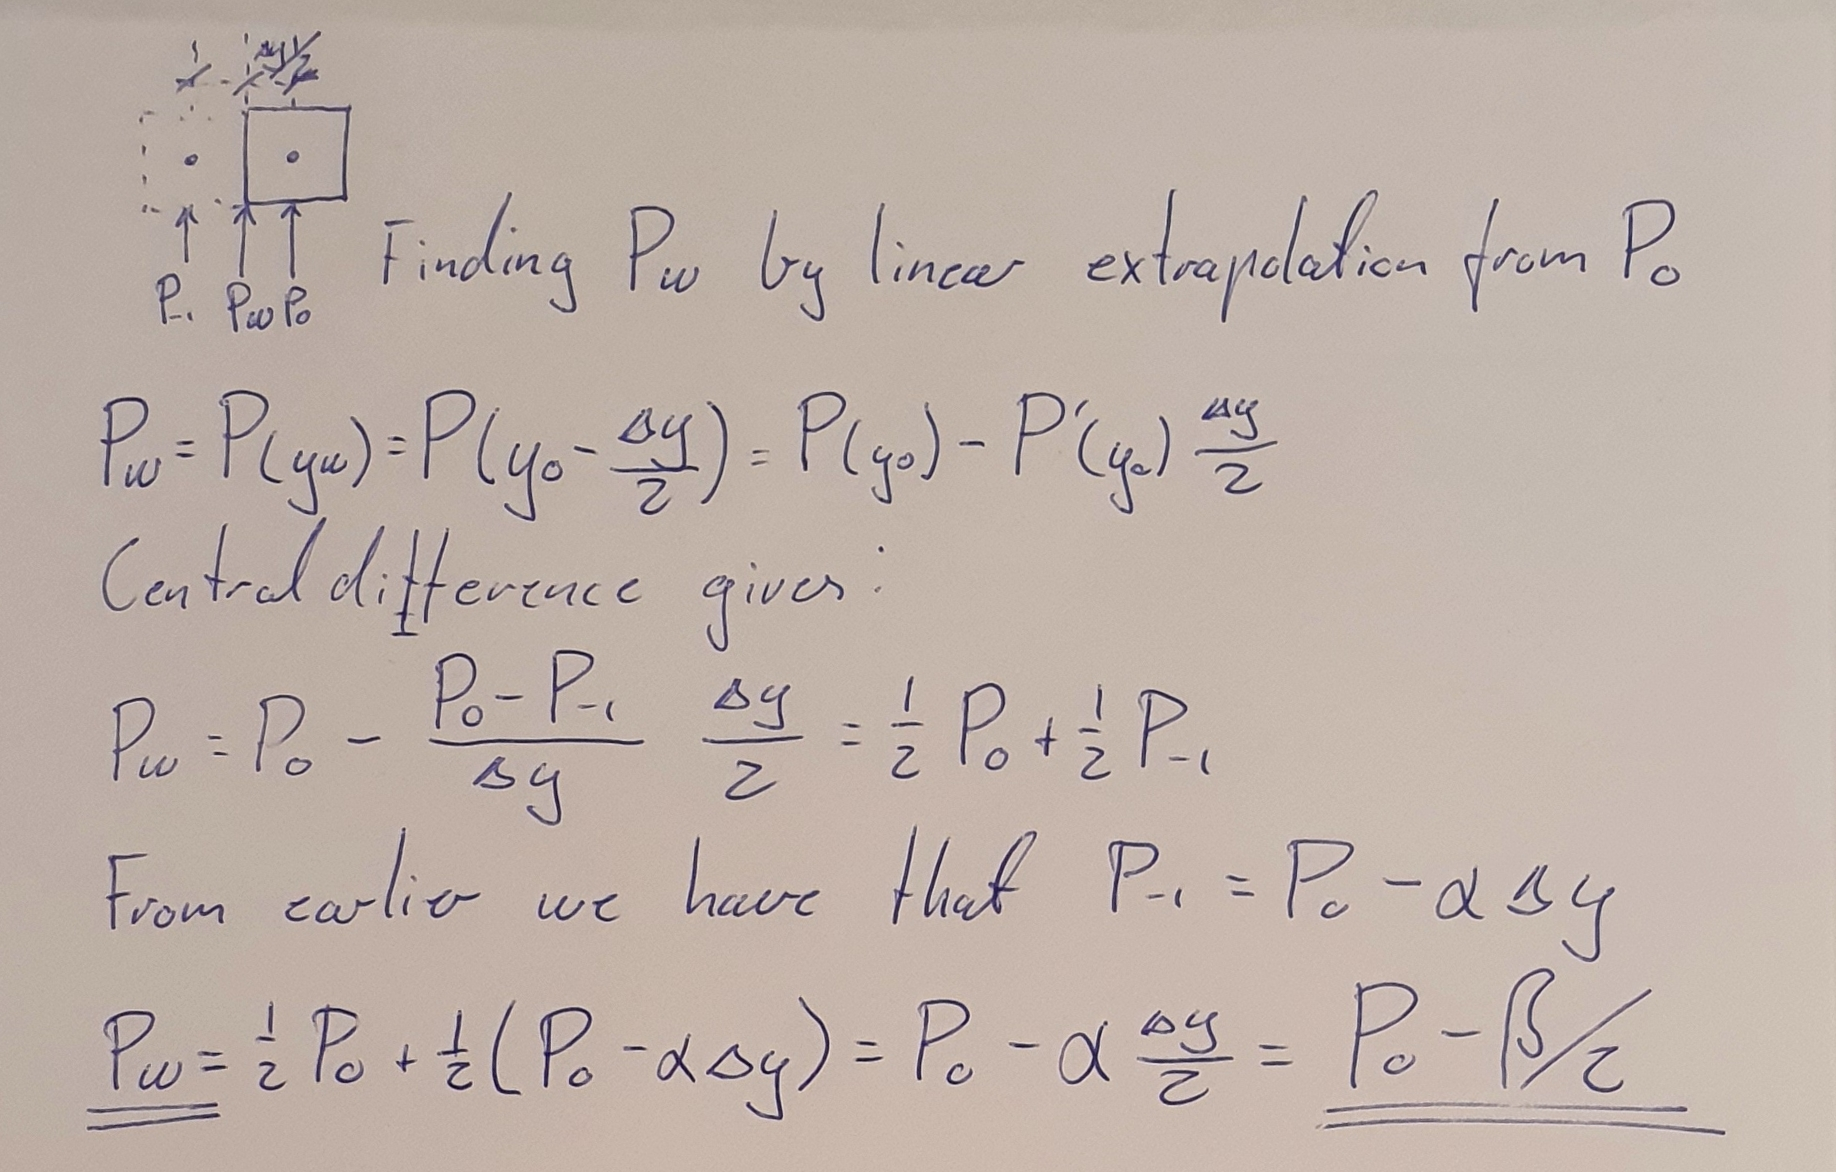 Δy/2
P₋₁ Pw P₀
Finding Pw by linear extrapolation from P₀
Pw = P(yw) = P(y₀ - Δy/2) = P(y₀) - P'(y₀) Δy/2
Central difference gives:
Pw = P₀ - (P₀ - P₋₁)/Δy Δy/2 = 1/2 P₀ + 1/2 P₋₁
From earlier we have that P₋₁ = P₀ - αΔy
Pw = 1/2 P₀ + 1/2 (P₀ - αΔy) = P₀ - α Δy/2 = P₀ - β/2